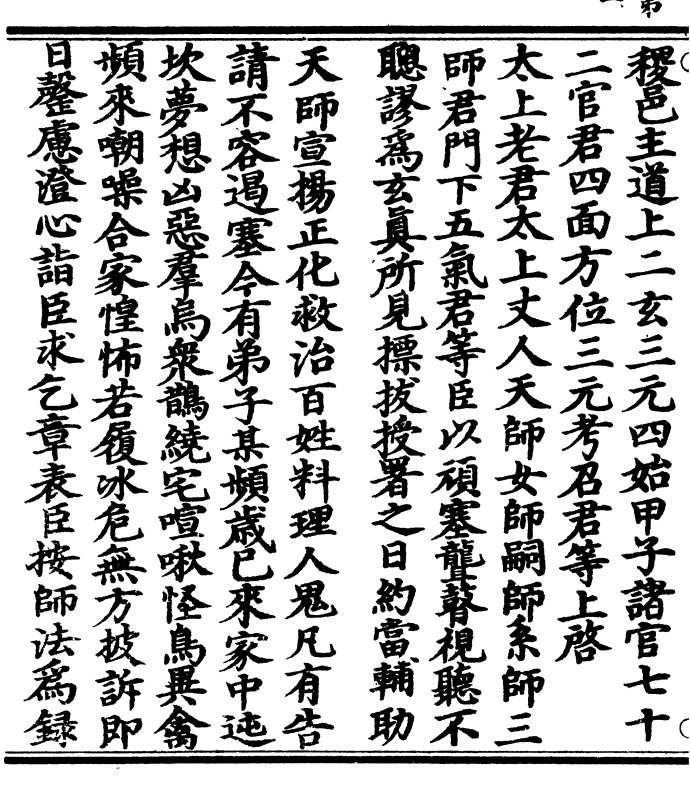 稷邑主道上二玄三元四始甲子諸官七十
二官君四面方位三元考召君等上啓
太上老君太上丈人天師女師嗣師系師三
師君門下五氣君等臣以頑塞聾瞽視聽不
聰謬爲玄眞所見摽拔授署之日約當輔助
天師宣揚正化救治百姓料理人鬼凡有告
請不容遏塞今有弟子某頻歲已來家中迍
坎夢想凶惡羣烏衆鵲繞宅喧啾怪鳥異禽
頻來嘲噪合家惶怖若履冰危無方披訴即
日罄慮澄心詣臣求乞章表臣按師法爲録